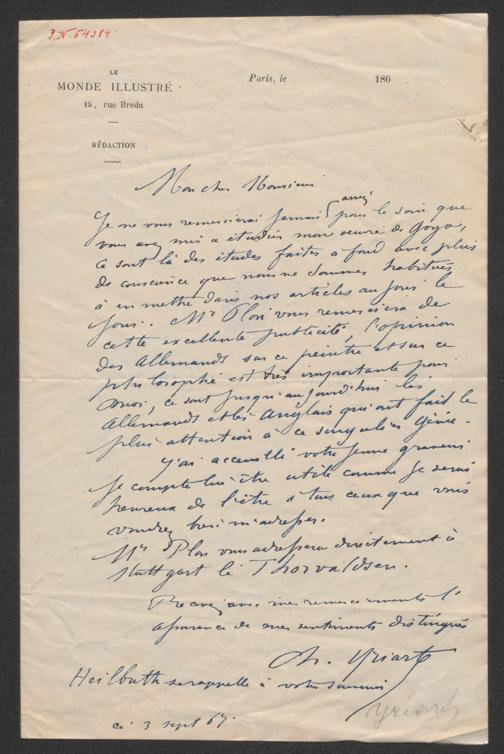 J.N. 64984
LE
MONDE ILLUSTRÉ
15, rue Breda
RÉDACTION
Paris, le 186
Mon cher Monsieur
assez
Je ne vous remercierai jamais pour le soin que
vous avez mis a étudier mon œuvre de Goya,
ce sont là des études faites a fond avec plus
de conscience que nous ne sommes habitués
à en mettre dans nos articles au jour le
jour. Mr Plon vous remerciera de
cette excellente publicité, l'opinion
des Allemands sur ce peintre et sur ce
philosophe est très importante pour
moi, ce sont jusqu'aujourd'hui les
Allemands et les Anglais qui ont fait le
plus attention à ce singulier génie.
J'ai accueilli votre jeune graveur
Je compte lui être utile comme je serai
heureux de l'être a tous ceux que vous
voudrez bien m'adresser.
Mr Plon vous adressera directement à
Stuttgart le Thorvaldsen.
Recevez avec mes remerciements l'
assurance de mes sentiments distingués
Ch. Yriarte
Heilbuth se rappelle à votre souvenir
ce 3 sept 67.
Yriarte